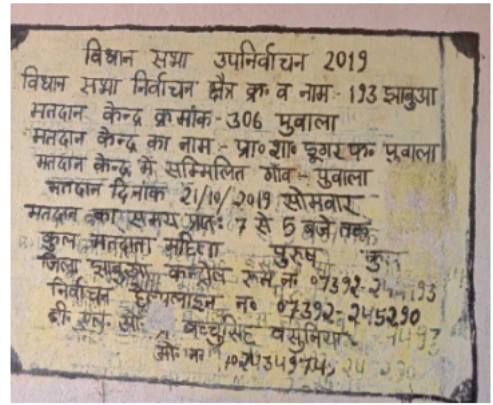 विधान सभा उपनिर्वाचन 2019
विधान सभा निर्वाचन क्षेत्र क्र॰ व नाम - 193 झाबुआ
मतदान केन्द्र क्रमांक - 306 पुवाला
मतदान केन्द्र का नाम - प्रा॰ शा॰ डूंगर फ॰ पुवाला
मतदान केन्द्र में सम्मिलित गाँव - पुवाला
मतदान दिनांक 21/10/2019 सोमवार
मतदान का समय प्रात: 7 से 5 बजे तक
कुल मतदाता महिला पुरुष कुल
जिला झाबुआ कन्ट्रोल रूम नं॰ 07392-
निर्वाचन हेल्पलाइन न॰ 07392-245290
बी॰ एल॰ ओ॰ बच्चुसिंह वसुनिया
मो॰ न॰